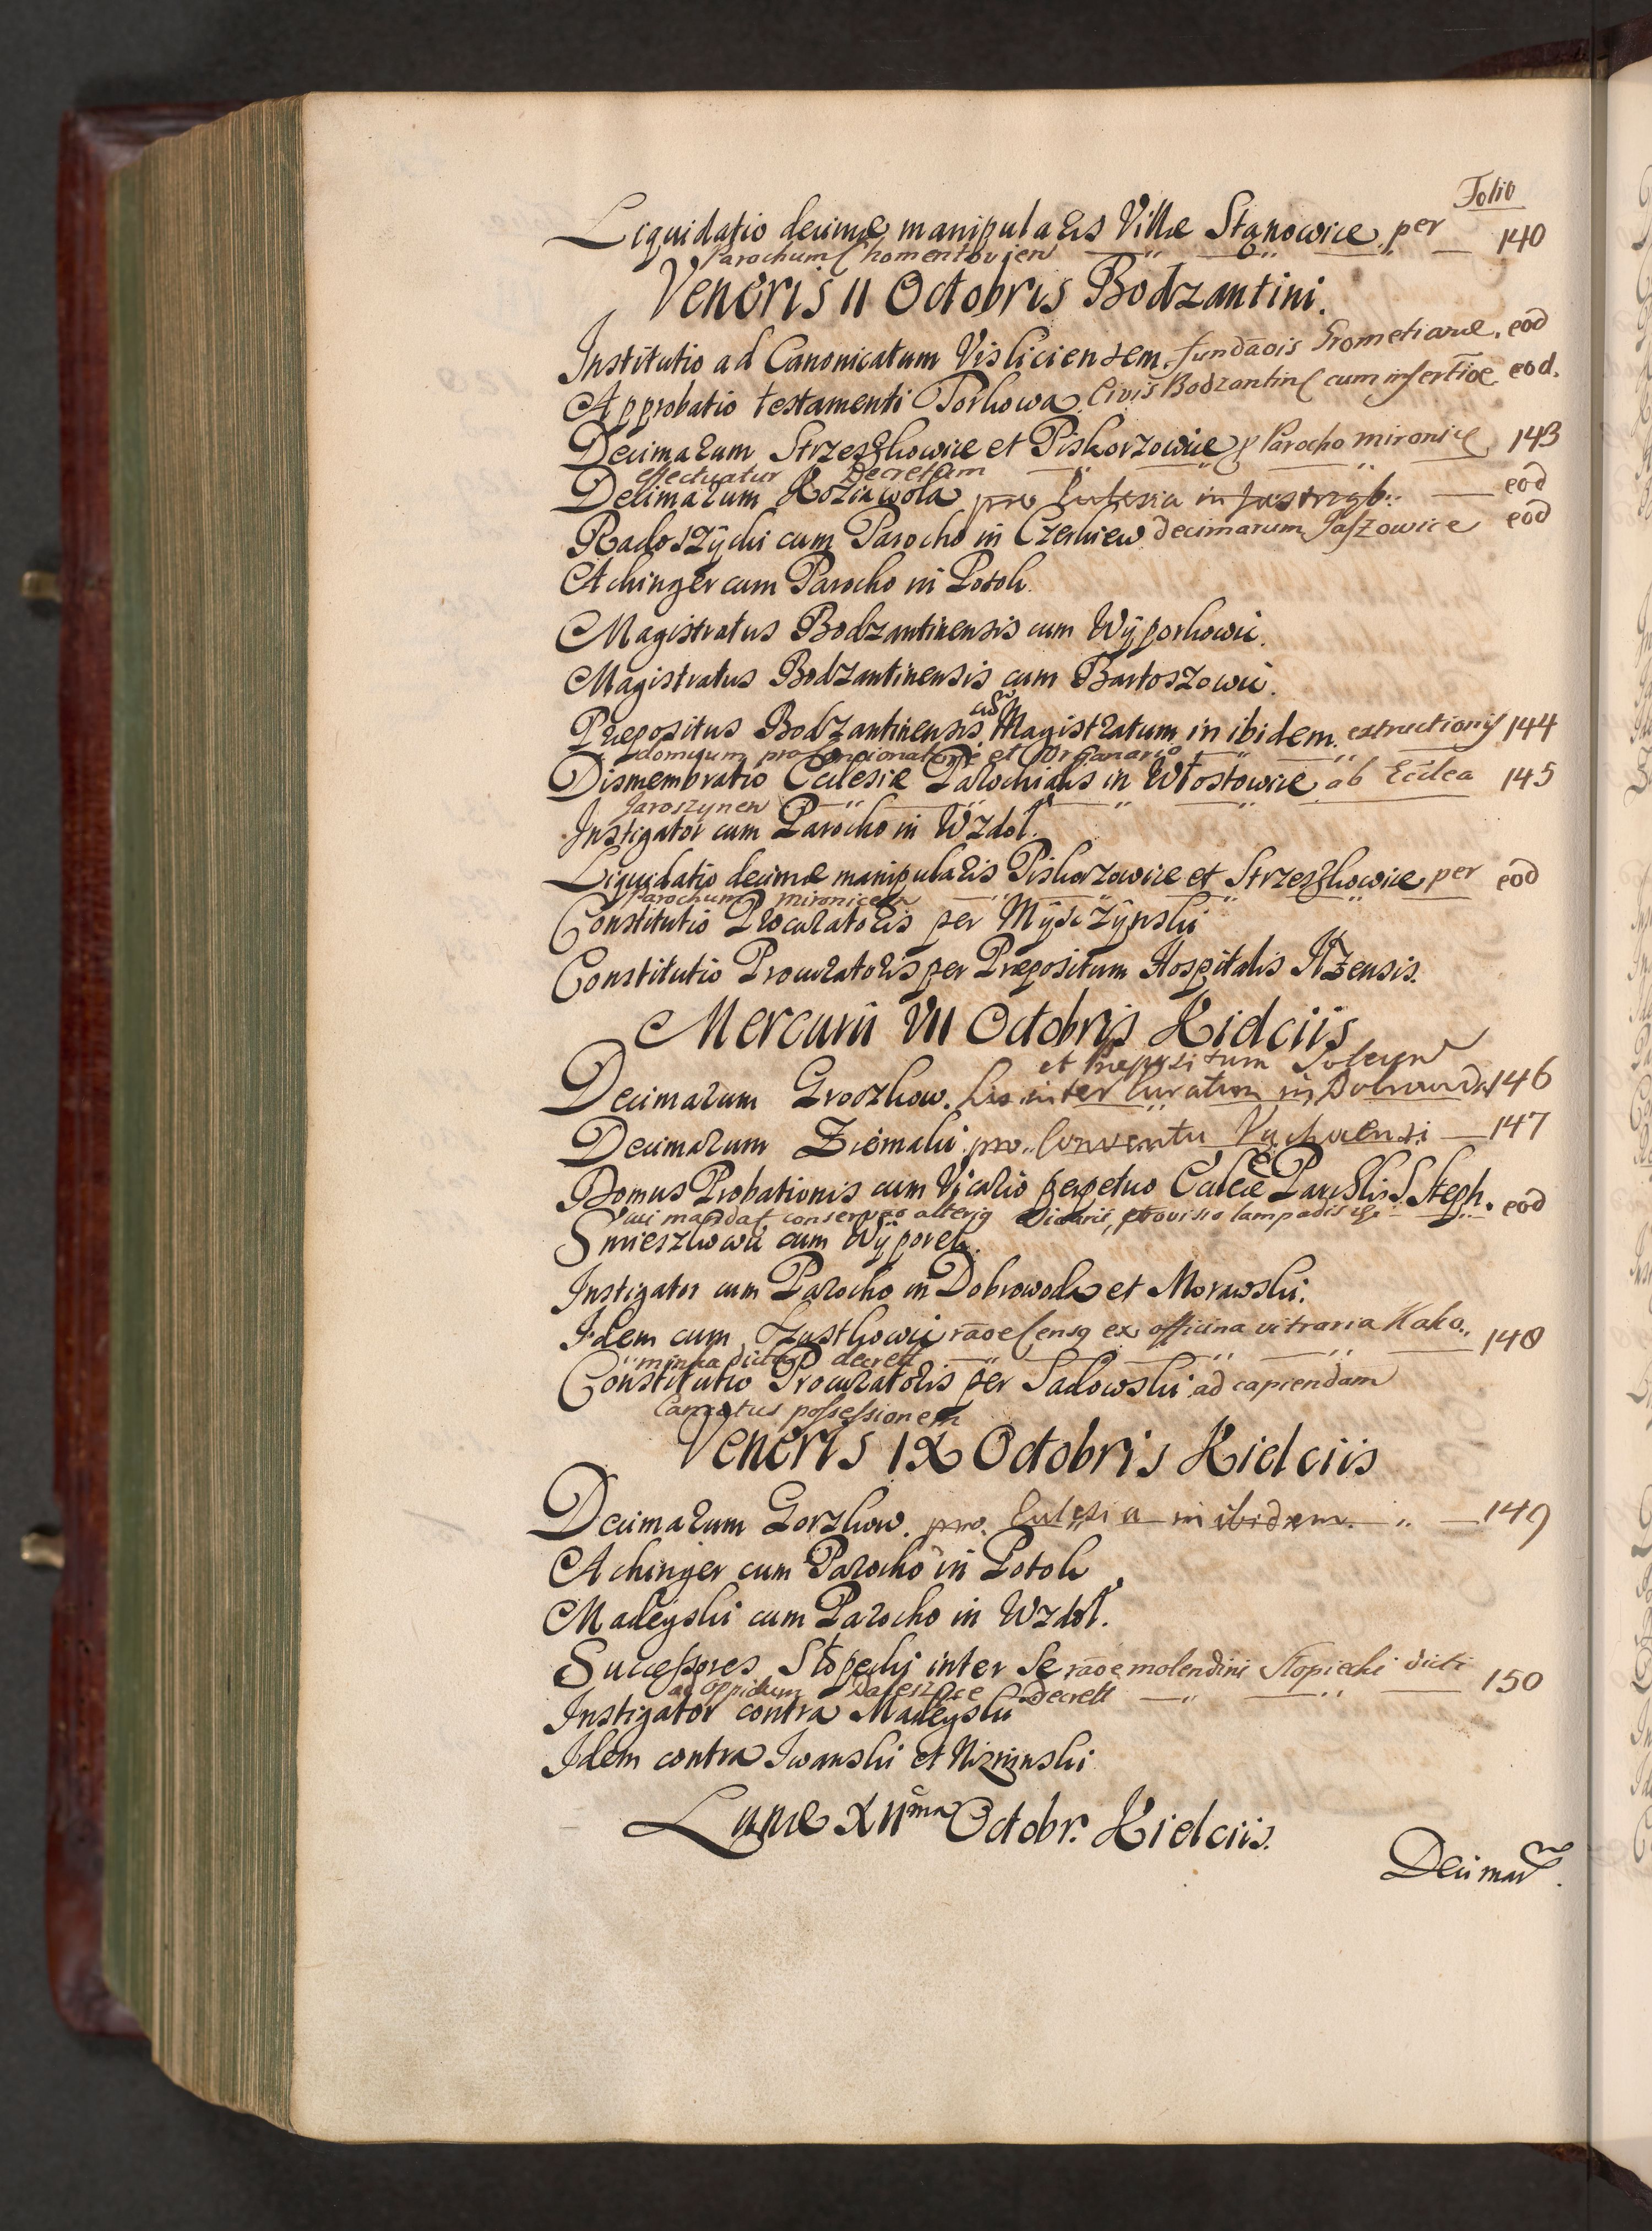 Folio
Liquidatio decimæ manipularis Villæ Stanowice per 140
Parochum Chomentovien
Veneris II Octobris Bodzantini.
Institutio ad Canonicatum Visliciensem fundaõis Grometianæ. eod
Approbatio testamenti Porkowa Civis Bodzantin cum insertiõe eod.
Decimarum Strzeszkowice et Piskorzowice p Parocho Mironice 143
effectuatur Decretum
Decimarum Kozia wola pro Eulesia in Jastrząb. eod
Radoszÿcki cum Parocho in Czerkiew decimarum Jaszowice eod
Achinger cum Parocho in Potok
Magistratus Bodzantinensis cum Wÿporkowic.
Magistratus Bodzantinensis cum Bartoszowic.
Præpositus Bodzantinensis adñ Magistratum in ibidem. extructionis 144
domuum pro Concionatore et Organario
Dismembratio Ecclesiæ Parochialis in Włostowice ab Ecclea 145
Jaroszynen
Instigator cum Parocho in Wzdoł.
Liquidatio decimæ manipularis Piskorzowice et Strzeszkowice per eod
Parochum mironicen
Constitutio Procuratoris per Mÿsczÿnski
Constitutio Procuratoris per Præpositum Hospitalis Ilżensis.
Mercurii VII Octobris Kielciis
et Præpositum Solecyn
Decimarum Grozkow. Lis inter Curatum in Dobrowoda 146
Decimarum Ziemaki pro Conventu Vąchocensi 147
Domus Probationis cum Vicario perpetuo Ecclæ Parchlis S. Steph. eod
cui mandat conservão alterig Vicarii, provisio lampadis
Smieszkowic cum Wÿporek.
Instigator cum Parocho in Dobrowoda et Morawski.
Idem cum Zustkowic rãoe Censq ex officina vitraria Kako 148
minka dicta decrett
Constitutio Procuratoris per Sadowski ad capiendam
Canõatus possessionem
Veneris IX Octobris Kielciis
Decimarum Gorzkow. pro Eulesia in ibidem. 149
Achinger cum Parocho in Potok
Madeyski cum Parocho in Wzdoł.
Successores Stopecki inter se rãoe molendini Stopiecki dicti 150
ad oppidum Daleszyce Decrett
Instigator contra Madeyski
Idem contra Iwanski et Nizninski
Lunæ XIIma Octobr. Kielciis.
Decimar